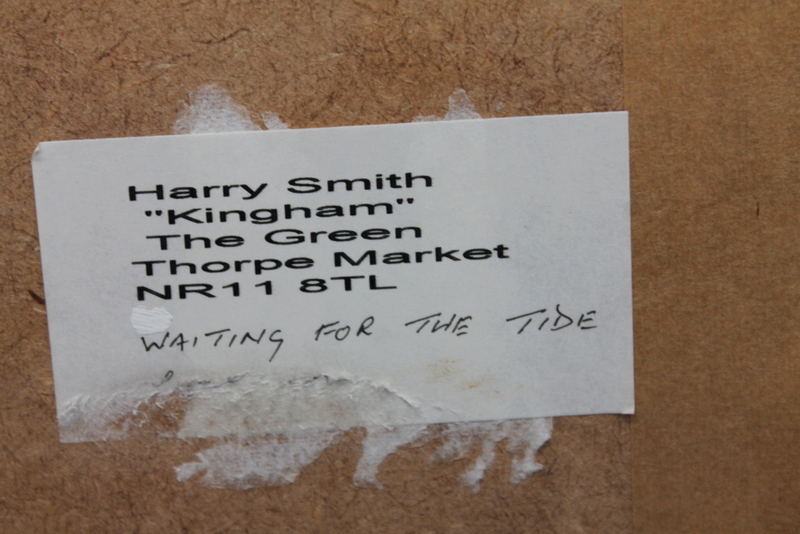 Harry Smith
"Kingham"
The Green
Thorpe Market
NR11 8TL
WAITING FOR THE TIDE